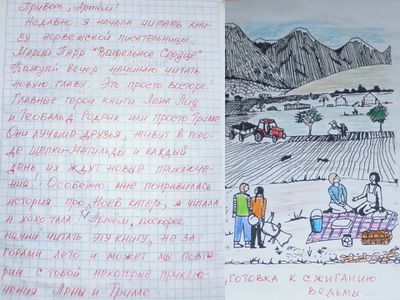 Привет, Артём!
Недавно я начала читать кни-
гу норвежской писательницы
Марии Парр "Вафельное Сердце"
Каждый вечер начинаю читать
новую главу. Это просто восторг.
Главные герои книги Лена Лид
и Теобальд Родрик или просто Трилле.
Они лучшие друзья, живут в горо-
де Щепки-Матильды и каждый
день их ждут новые приключе-
ния. Особенно мне понравилась
история про Ноев катер, я читала
и хохотала. Артём, поскорее
начни читать эту книгу, не за
горами лето и может мы повто-
рим с тобой некоторые приклю-
чения Лены и Трилле.
готовка к сжиганию
ведьмы...